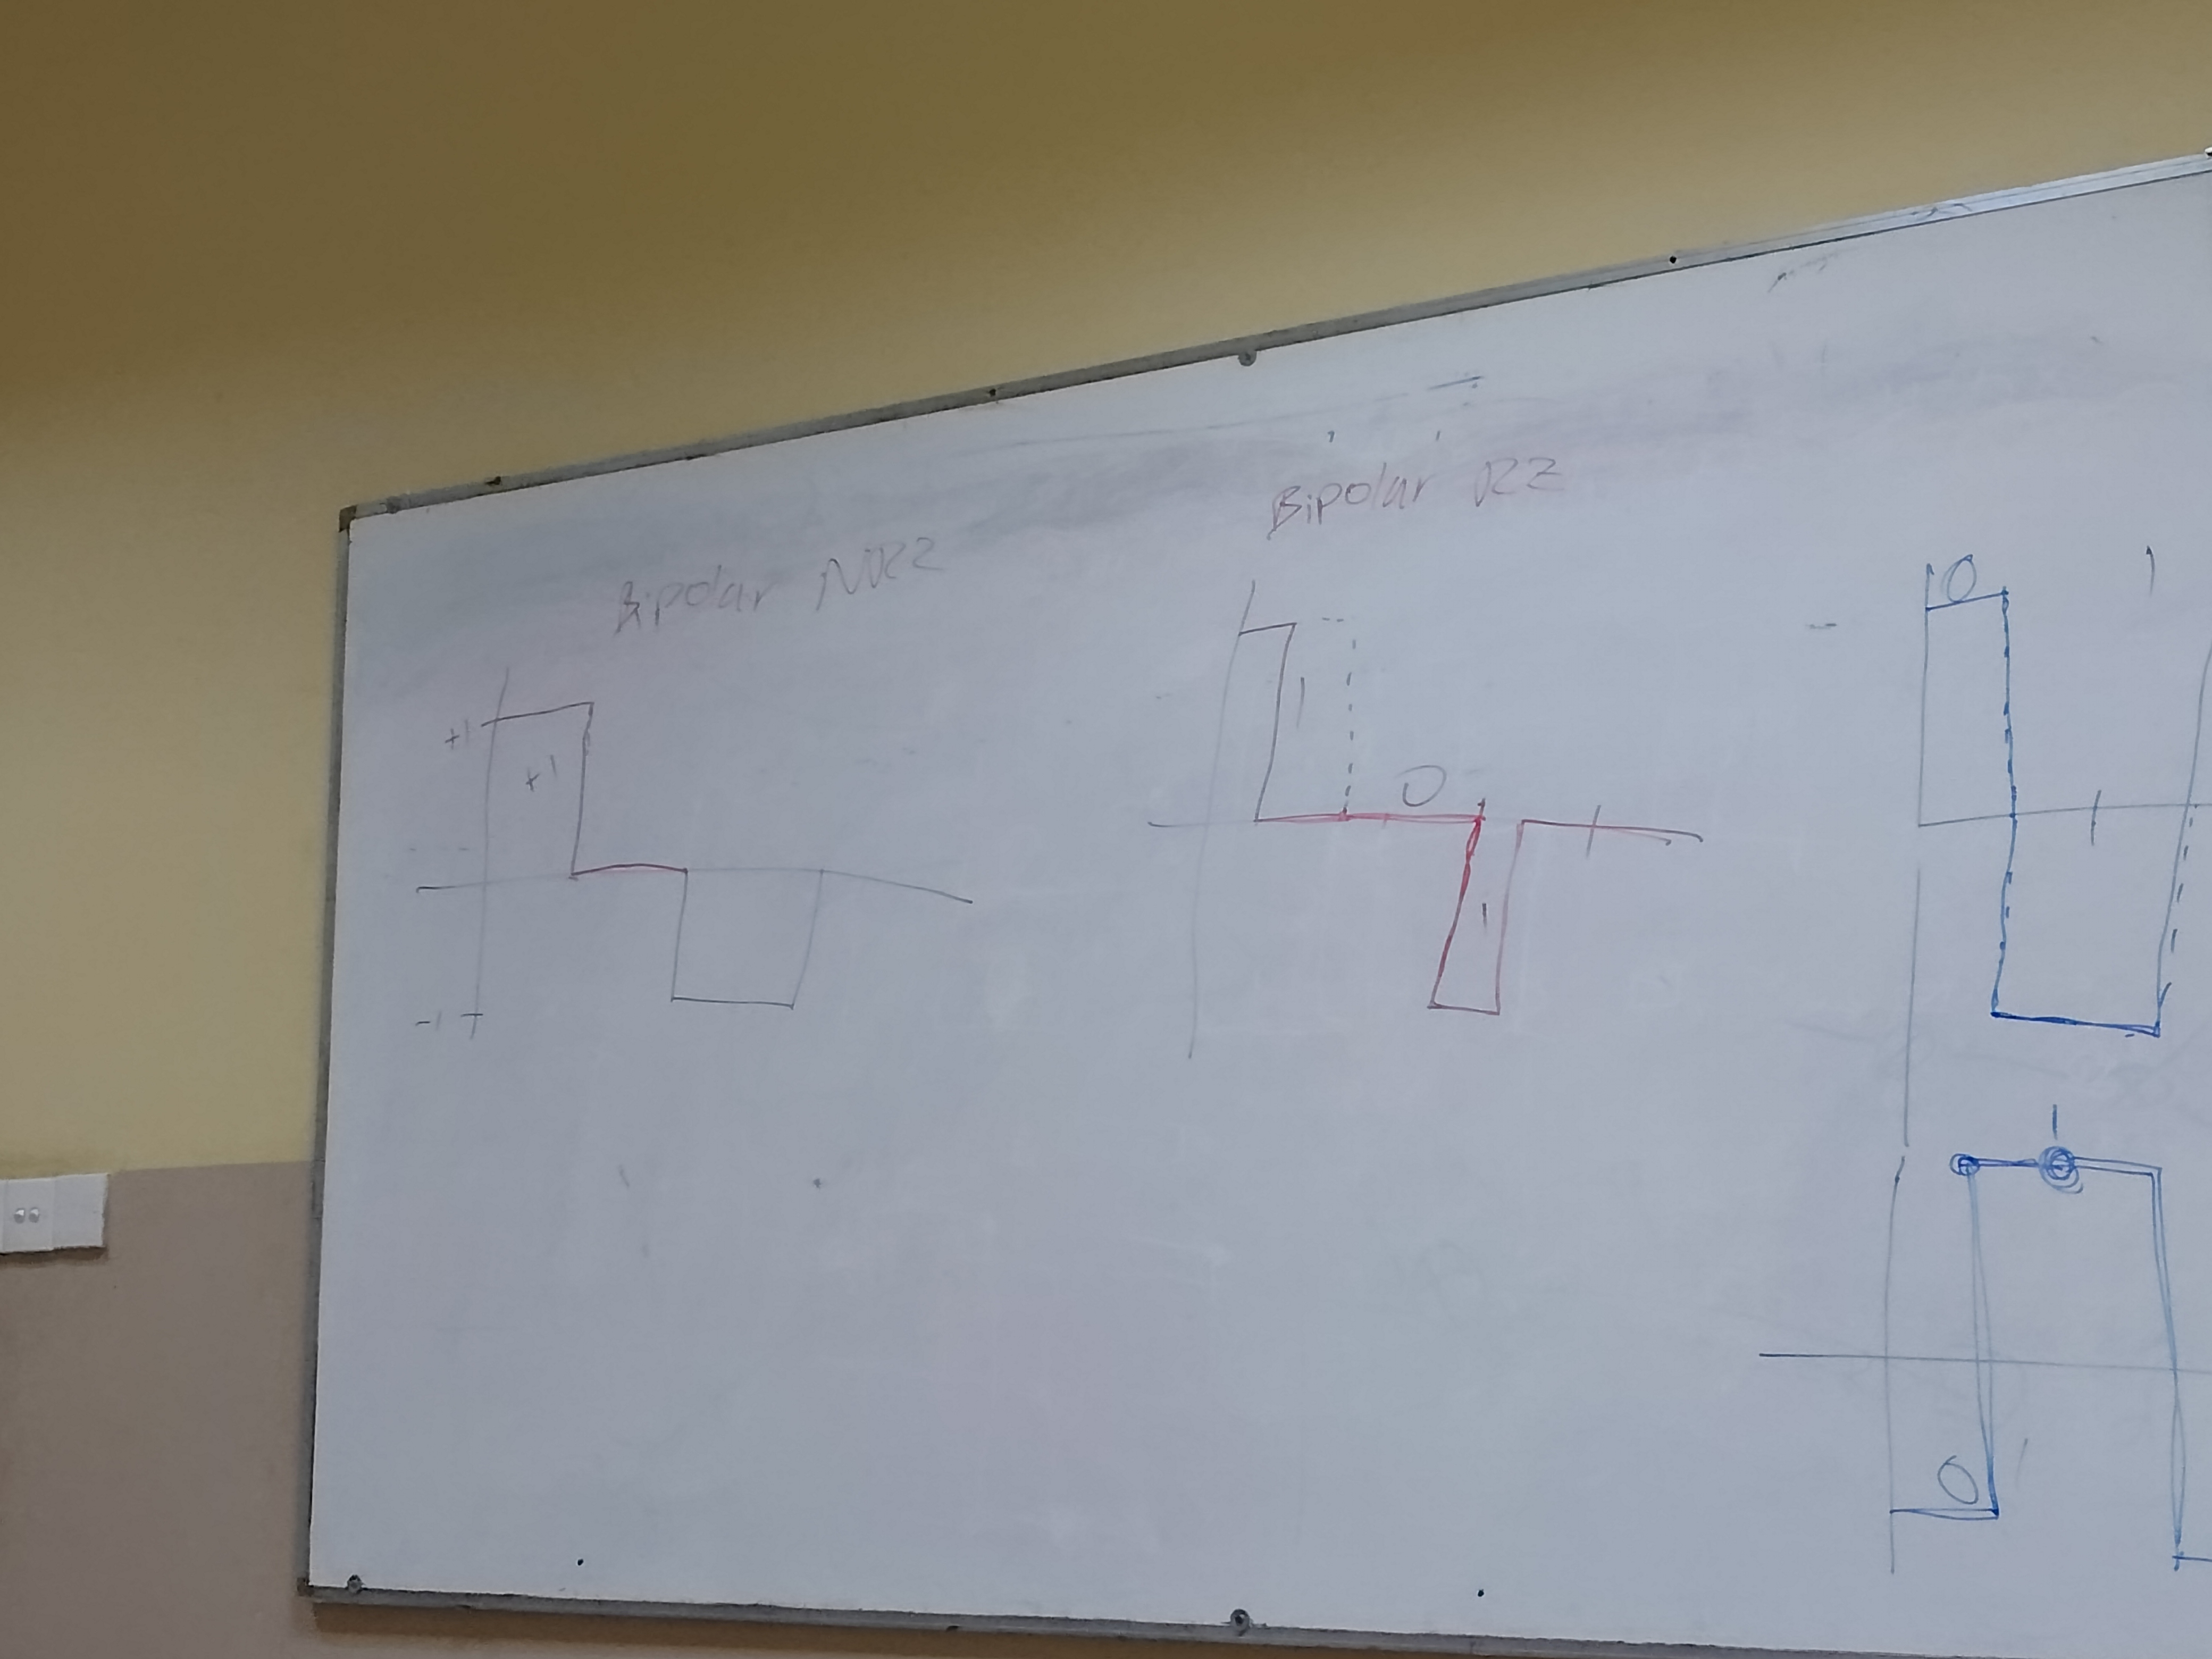 Bipolar NRZ
+1
+1
-1
Bipolar RZ
1
0
1
0
1
1
0